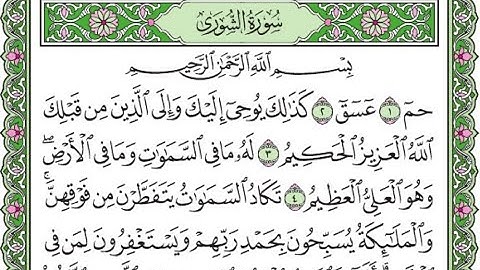 سُورَةُ الشُّورَىٰ
بِسْمِ اللَّهِ الرَّحْمَٰنِ الرَّحِيمِ
حمٓ ۝١ عٓسٓقٓ ۝٢ كَذَٰلِكَ يُوحِىٓ إِلَيْكَ وَإِلَى ٱلَّذِينَ مِن قَبْلِكَ
ٱللَّهُ ٱلْعَزِيزُ ٱلْحَكِيمُ ۝٣ لَهُۥ مَا فِى ٱلسَّمَٰوَٰتِ وَمَا فِى ٱلْأَرْضِ ۖ
وَهُوَ ٱلْعَلِىُّ ٱلْعَظِيمُ ۝٤ تَكَادُ ٱلسَّمَٰوَٰتُ يَتَفَطَّرْنَ مِن فَوْقِهِنَّ ۚ
وَٱلْمَلَٰٓئِكَةُ يُسَبِّحُونَ بِحَمْدِ رَبِّهِمْ وَيَسْتَغْفِرُونَ لِمَن فِى